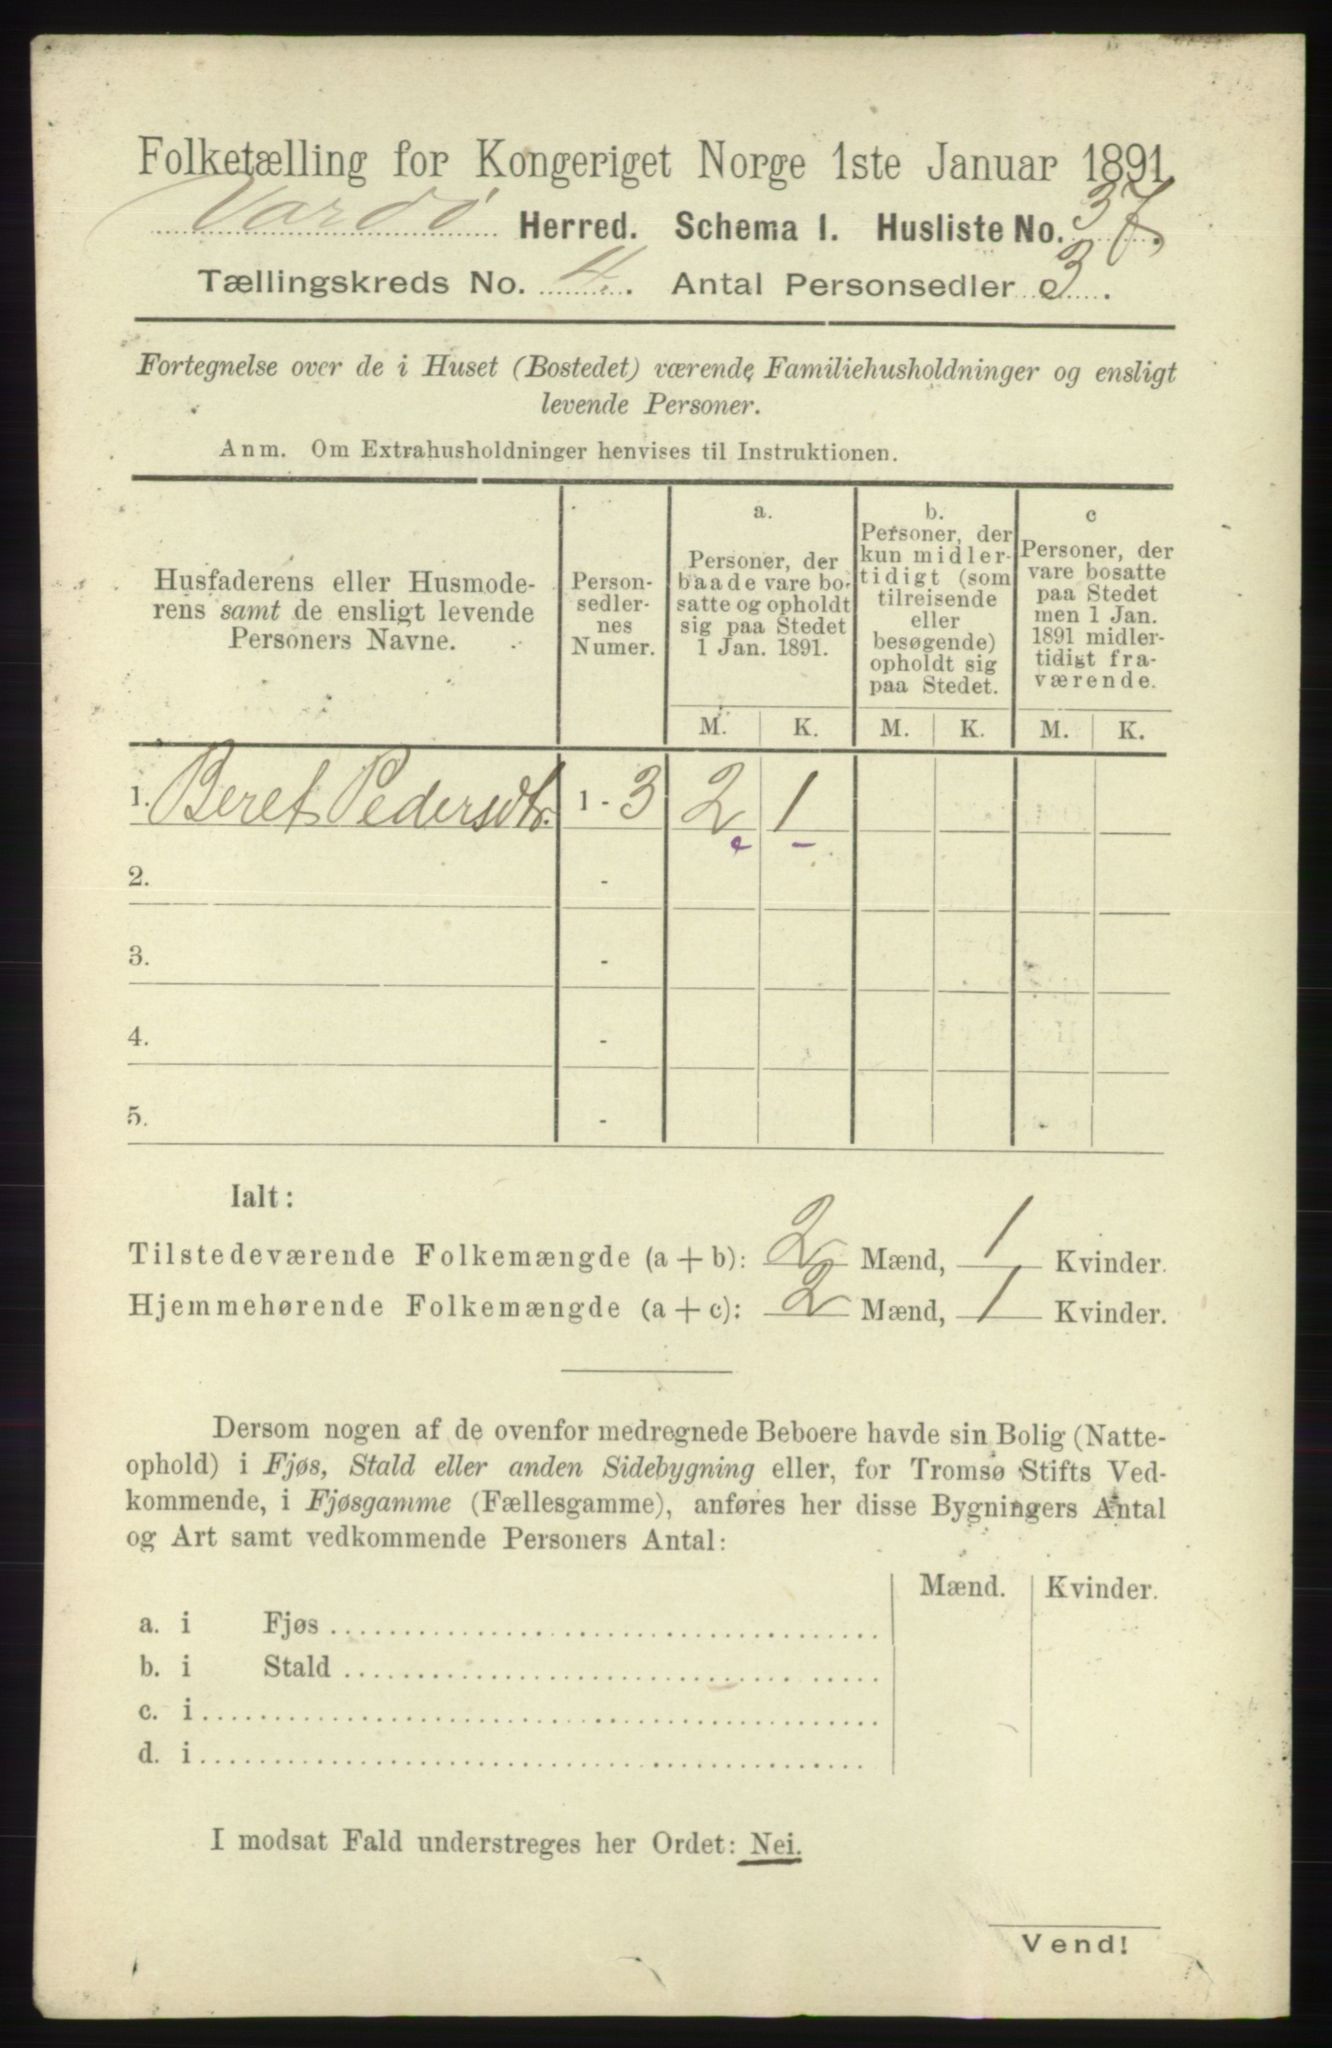 Folketælling for Kongeriget Norge 1ste Januar 1891.
Vardø Herred. Schema I. Husliste No. 37.
Tællingskreds No. 4. Antal Personsedler 3.
Fortegnelse over de i Huset (Bostedet) værende Familiehusholdninger og ensligt
levende Personer.
Anm. Om Extrahusholdninger henvises til Instruktionen.
Husfaderens eller Husmode-
rens samt de ensligt levende
Personers Navne.
Person-
sedler-
nes
Numer.
a.
Personer, der
baade vare bo-
satte og opholdt
sig paa Stedet
1 Jan. 1891.
b.
Personer, der
kun midler-
tidigt (som
tilreisende
eller
besøgende)
opholdt sig
paa Stedet.
c
Personer, der
vare bosatte
paa Stedet
men 1 Jan.
1891 midler-
tidigt fra-
værende.
M. K. M. K. M. K.
1. Beret Pedersdtr. 1 - 3 2 1
2. -
3. -
4. -
5. -
Ialt:
Tilstedeværende Folkemængde (a + b): 2 Mænd, 1 Kvinder.
Hjemmehørende Folkemængde (a + c): 2 Mænd, 1 Kvinder.
Dersom nogen af de ovenfor medregnede Beboere havde sin Bolig (Natte-
ophold) i Fjøs, Stald eller anden Sidebygning eller, for Tromsø Stifts Ved-
kommende, i Fjøsgamme (Fællesgamme), anføres her disse Bygningers Antal
og Art samt vedkommende Personers Antal:
Mænd. Kvinder.
a. i Fjøs
b. i Stald
c. i
d. i
I modsat Fald understreges her Ordet: Nei.
Vend!